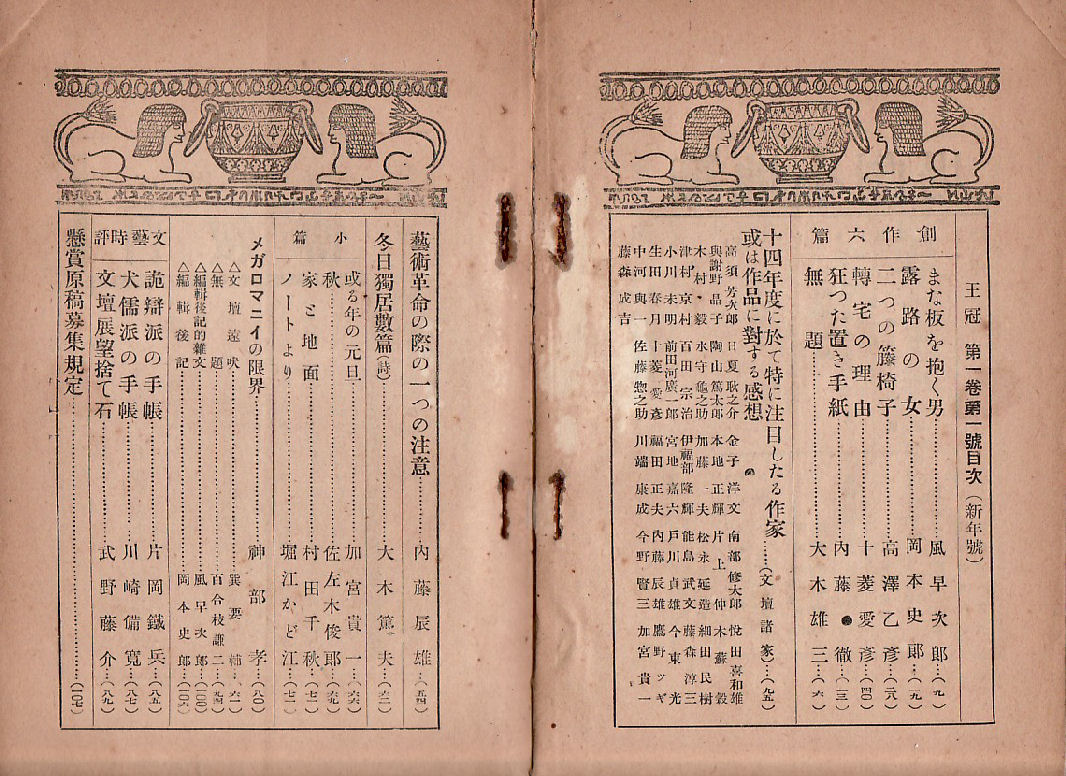 王冠 第一卷第一號目次(新年號)
創作六篇
まな板を抱く男……風早次郎…(九)
露路の女……岡本史郎…(一九)
二つの籐椅子……高澤乙彦…(二八)
轉宅の理由……十菱愛彦…(四〇)
狂つた置き手紙……內藤●徹…(一三)
無題……大木雄三…(六)
十四年度に於て特に注目したる作家
或は作品に對する感想……(文壇諸家)…(九五)
高須芳次郎 日夏耿之介 金子洋文 南部修太郎 悅田喜和雄
與謝野晶子 陶山篤太郎 本地正輝 片上伸 木蘇穀
木村毅 水守龜之助 加藤一夫 松永延造 細田民樹
津村京村 百田宗治 伊福部隆輝 能島武文 藤森淳三
小川未明 前田河廣一郎 宮地嘉六 戶川貞雄 今東光
生田春月 十菱愛彥 福田正夫 內藤辰雄 鷹野ツギ
中河與一 佐藤惣之助 川端康成 今野賢三 加宮貴一
藤森成吉
藝術革命の際の一つの注意……內藤辰雄…(五四)
冬日獨居數篇(詩)……大木篤夫…(六二)
小篇
或る年の元旦……加宮貴一…(六六)
秋……佐左木俊郎…(六九)
家と地面……村田千秋…(七一)
ノートより……堀江かど江…(七一)
メガロマニイの限界……神部孝…(八〇)
△文壇遠吠……巽要…(六一)
△無題……百合枝謙二…(九四)
△編輯後記的雜文……風早次郎…(一〇〇)
△編輯後記……岡本史郎…(一〇六)
文藝時評
詭辯派の手帳……片岡鐵兵…(八五)
犬儒派の手帳……川崎備寬…(八七)
文壇展望捨て石……武野藤介…(八九)
懸賞原稿募集規定……(一〇七)